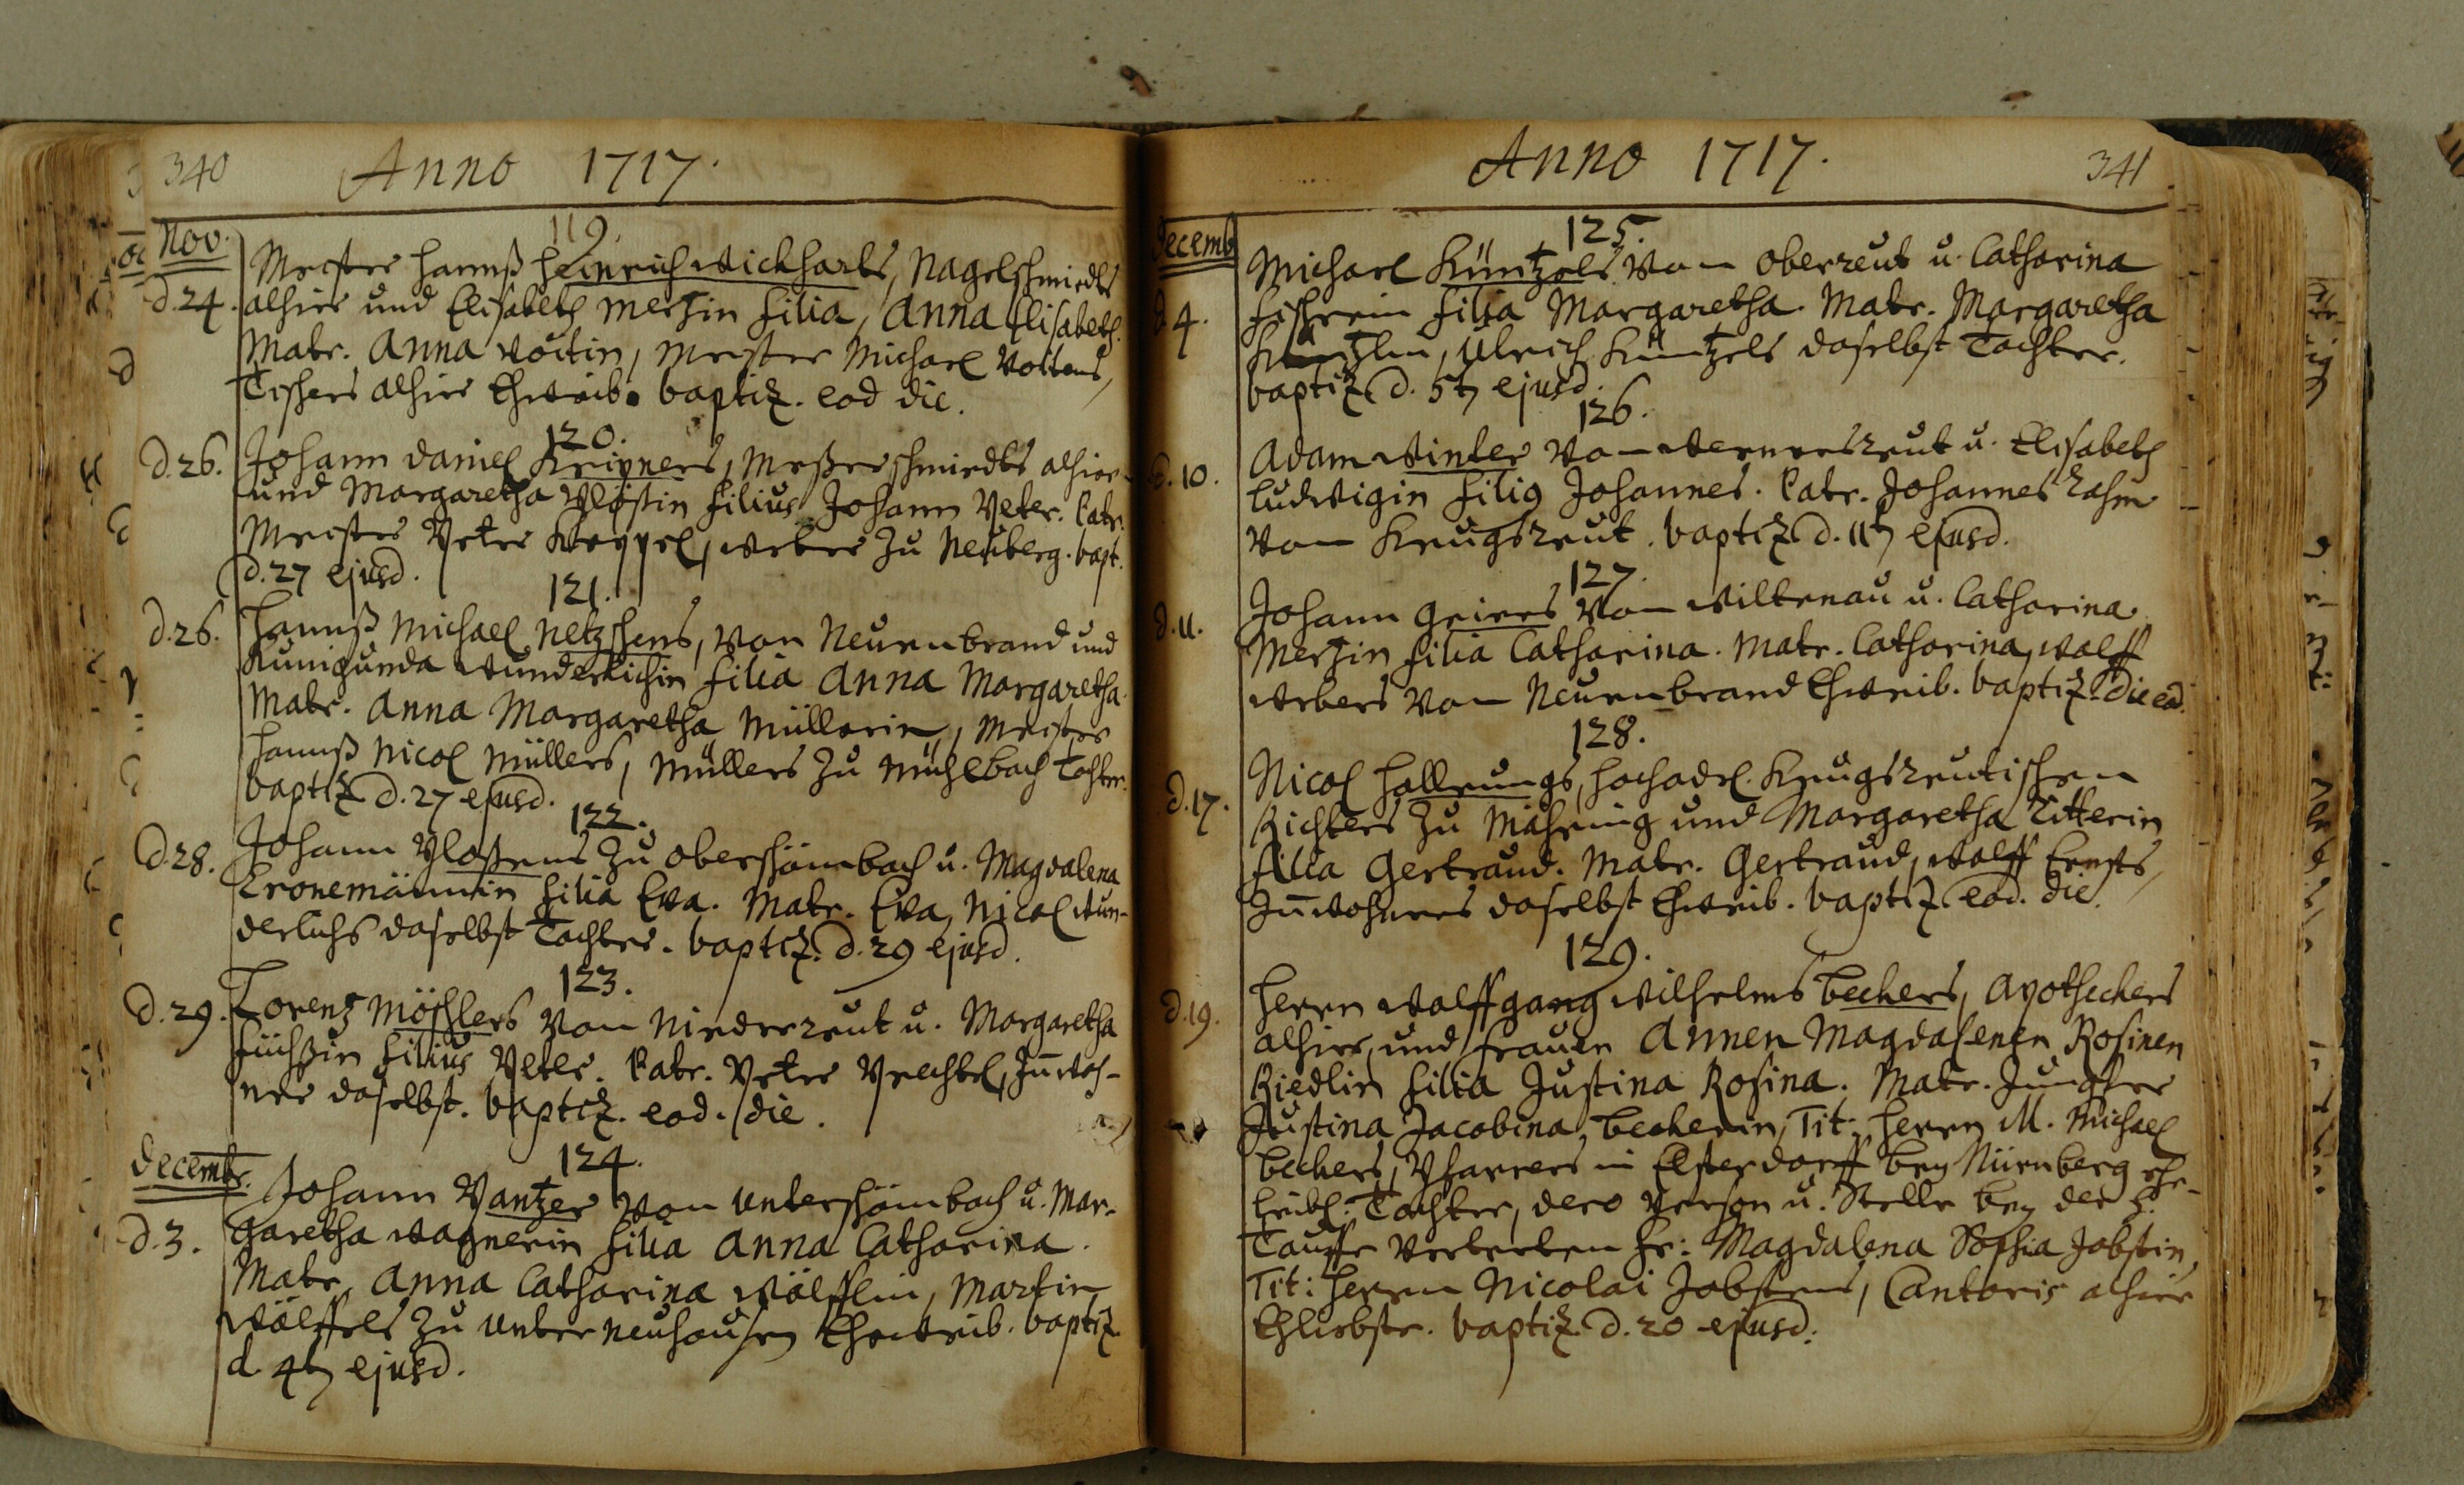 340 Anno 1717.
Nov.
119.
Meister Hannß Heinrich Wickharts, Nagelschmiedts
d. 24. alhier und Elisabeth Merzin filia, Anna Elisabeth.
Matr. Anna Voitin, Meister Michael Voitens,
Tischers alhier Eheweib. baptiz. eod die.
120.
d. 26. Johann Daniel Kriegners, Meßerschmiedts alhier
und Margaretha Plößin filius Johann Peter. Patr.
Meister Peter Keppel, Weber zu Neuberg. bapt.
d. 27 ejusd.
121.
d. 26. Hannß Michael Netzschens, von Neuenbrand und
Kunigunda Wunderlichin filia Anna Margaretha.
Matr. Anna Margaretha Müllerin, Meister
Hannß Nicol Müllers, Müllers zu Mühlbach Tochter.
baptiz d. 27 ejusd.
122.
d. 28. Johann Ploßens zu Oberschömbach u. Magdalena
Cronemännin filia Eva. Matr. Eva, Nicol Wun-
derlichs daselbst Tochter. baptiz. d. 29 ejusd.
123.
d. 29. Lorenz Möschlers von Niederreut u. Margaretha
Füchßin filius Peter. Patr. Peter Prechtel, Inwoh-
ner daselbst. baptiz. eod. die.
Decembr.
124.
Johann Pantzer von Unterschömbach u. Mar-
d. 3. garetha Wagnerin filia Anna Catharina.
Matr. Anna Catharina Wölfflin, Martin
Wölffels zu Unterneuhausen Eheweib. baptiz.
d. 4t ejusd.
Anno 1717. 341
Decemb
125.
Michael Küntzels von Oberreut u. Catharina
d 4. Fischerin filia Margaretha. Matr. Margaretha
Küntzlin, Ulrich Küntzels daselbst Tochter.
baptiz d. 5t ejusd.
126.
Adam Winter von Wernersreut u. Elisabeth
d. 10. Ludwigin filig Johannes. Patr. Johannes Rahm
von Krugsreut. baptiz d. 11t ejusd.
127.
d. 11. Johann Geiers von Wiltenau u. Catharina
Merzin filia Catharina. Matr. Catharina, Wolff
Webers von Neuenbrand Eheweib. baptiz. die eod.
128.
Nicol Hallrungs, Hochadel. Krugsreutischen
d. 17. Richters zu Mähring und Margaretha Ritterin
filia Gertraud. Matr. Gertraud, Wolff Ernsts,
Inwohners daselbst Eheweib. baptiz eod. die.
129.
d. 19. Herrn Wolffgang Wilhelms Beckers, Apotheckers
alhier, und Frauen Annen Magdalenen Rosinen
Riedlin filia Justina Rosina. Matr. Jungfer
Justina Jacobina, Beckerin, Tit: Herrn M. Michael
Beckers, Pfarrers in Elsterdorff bey Nürnberg ehe-
leibl. Tochter, dero Person u. Stelle bey der H.
Tauffe vertreten Fr: Magdalena Sophia Jobstin,
Tit: Herrn Nicolai Jobstens, Cantoris alhier
Ehliebste. baptiz. d. 20 ejusd: